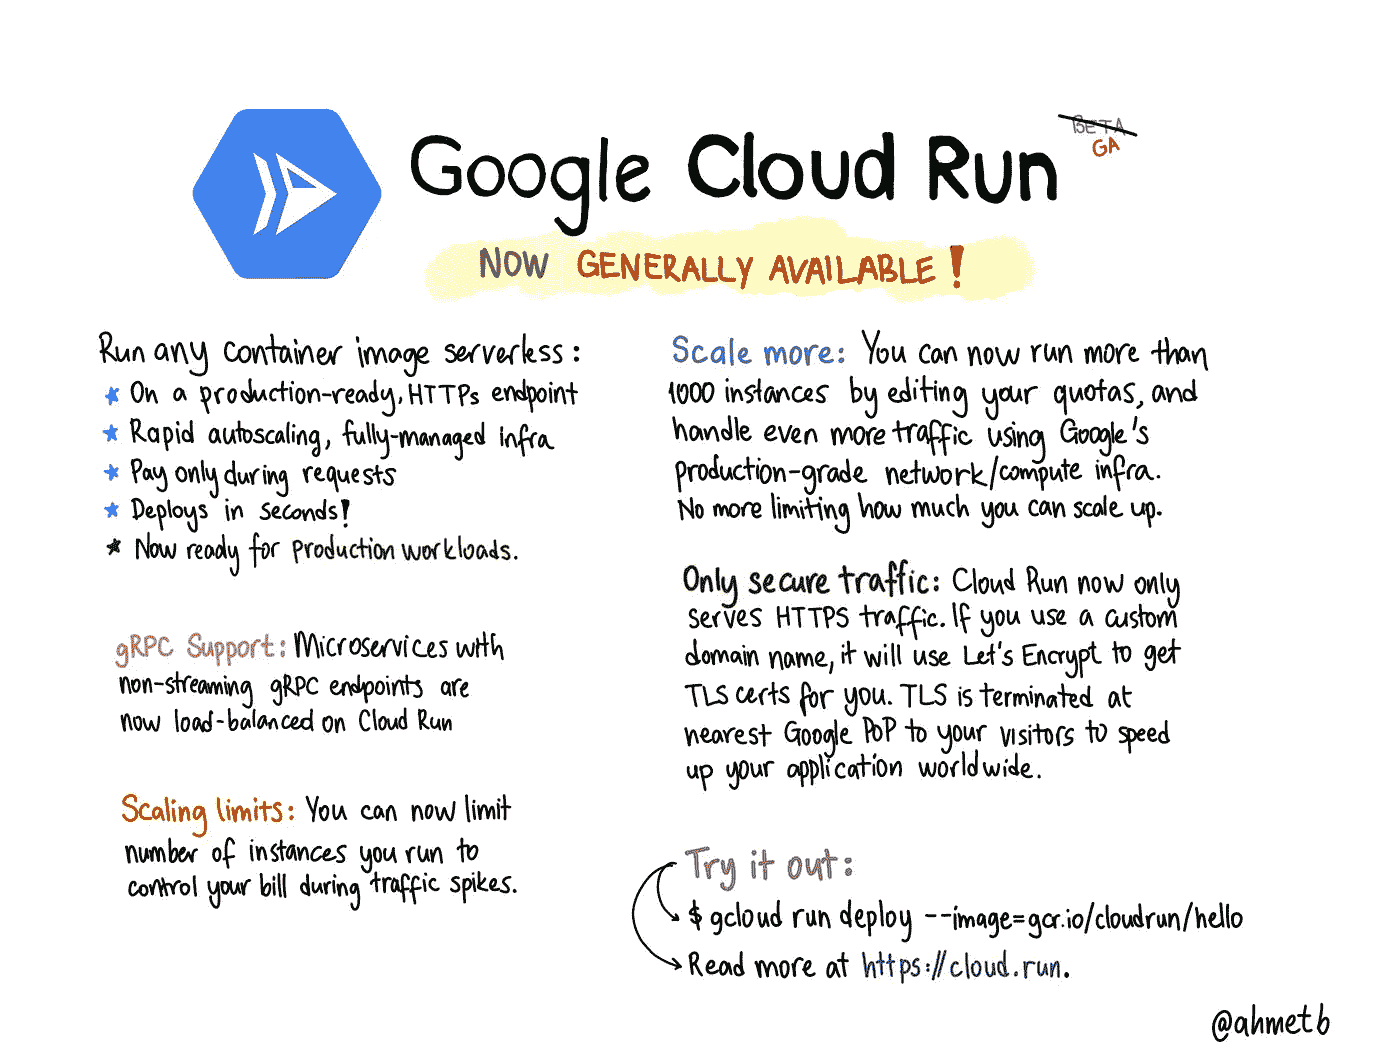 Google Cloud Run
BETA
GA
NOW GENERALLY AVAILABLE!
Run any container image serverless:
★ On a production-ready, HTTPs endpoint
★ Rapid autoscaling, fully-managed infra
★ Pay only during requests
★ Deploys in seconds!
★ Now ready for production workloads.
gRPC Support: Microservices with
non-streaming gRPC endpoints are
now load-balanced on Cloud Run
Scaling limits: You can now limit
number of instances you run to
control your bill during traffic spikes.
Scale more: You can now run more than
1000 instances by editing your quotas, and
handle even more traffic using Google's
production-grade network/compute infra.
No more limiting how much you can scale up.
Only secure traffic: Cloud Run now only
serves HTTPS traffic. If you use a custom
domain name, it will use Let's Encrypt to get
TLS certs for you. TLS is terminated at
nearest Google PoP to your visitors to speed
up your application worldwide.
Try it out:
$ gcloud run deploy --image=gcr.io/cloudrun/hello
Read more at https://cloud.run.
@ahmetb